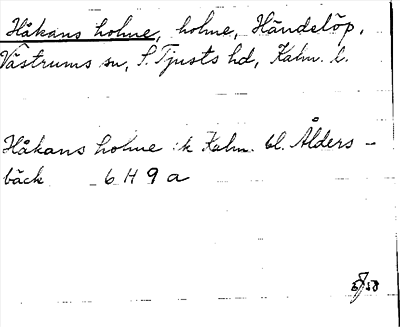 Håkans holme, holme, Händelöp,
Västrums sn, S. Tjusts hd, Kalm. l.
Håkans holme :k Kalm. bl. Ålders-
bäck 6 H 9 a